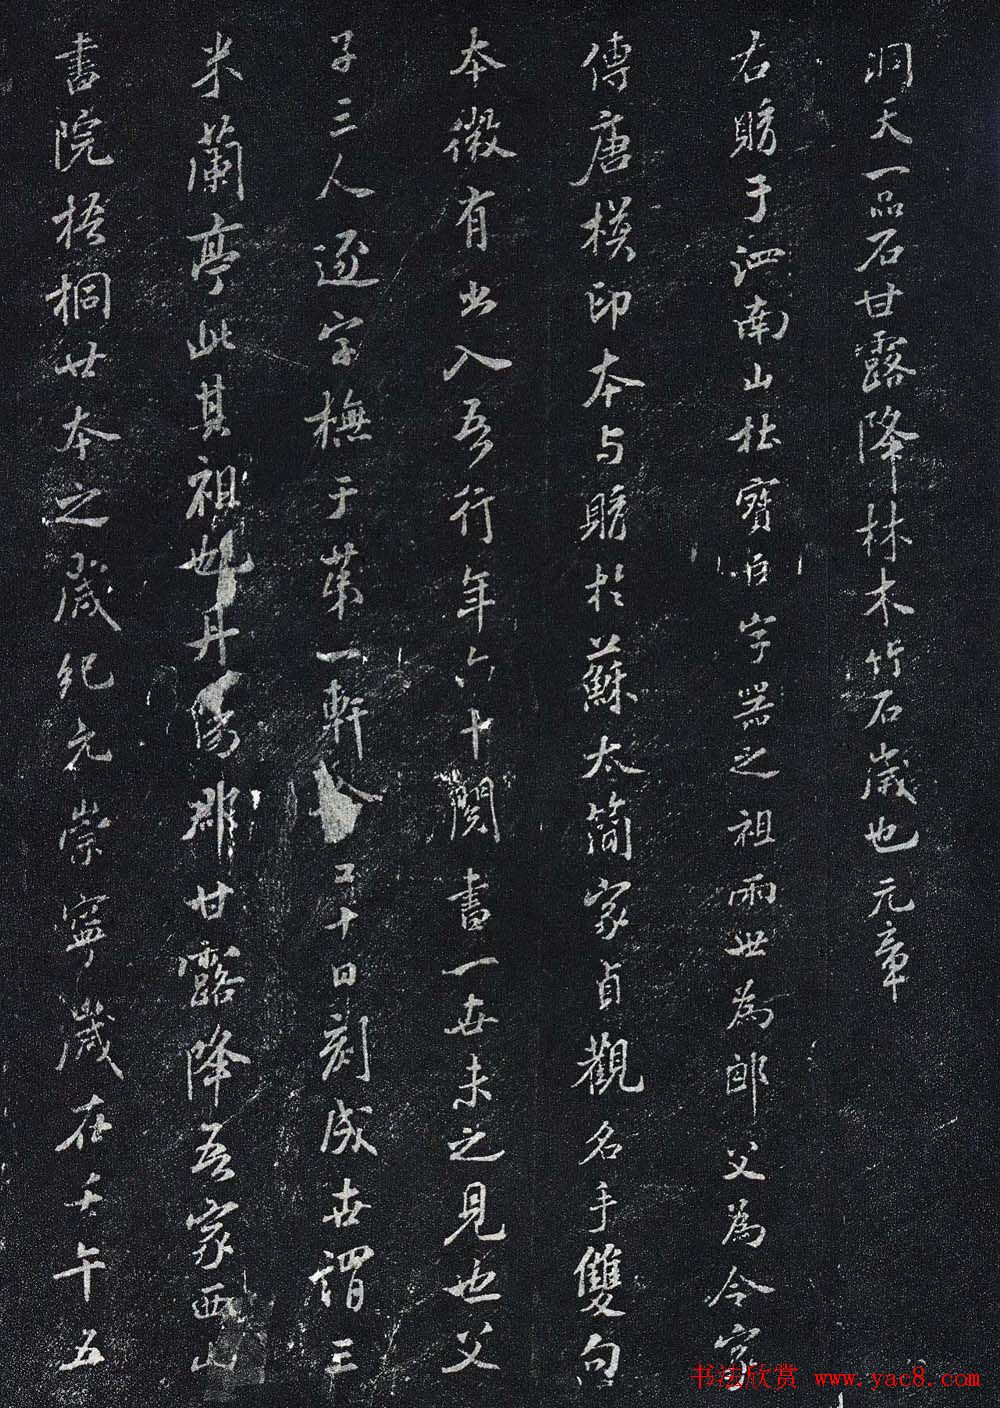 洞天一品石甘露降林木竹石歲也元章
右購于泗南山杜寶臣字器之祖兩世為郎父為令家
傳唐模印本与購於蘇太簡家貞觀名手雙勾
本微有出入吾行年六十閱書一世未之見也父
子三人逐字橅于苐一軒 工十日剋成世謂三
米蘭亭此其祖也丹陽郡甘露降吾家西山
書院梧桐廿本之歲紀元崇寧歲在壬午五
书法欣赏 www.yac8.com